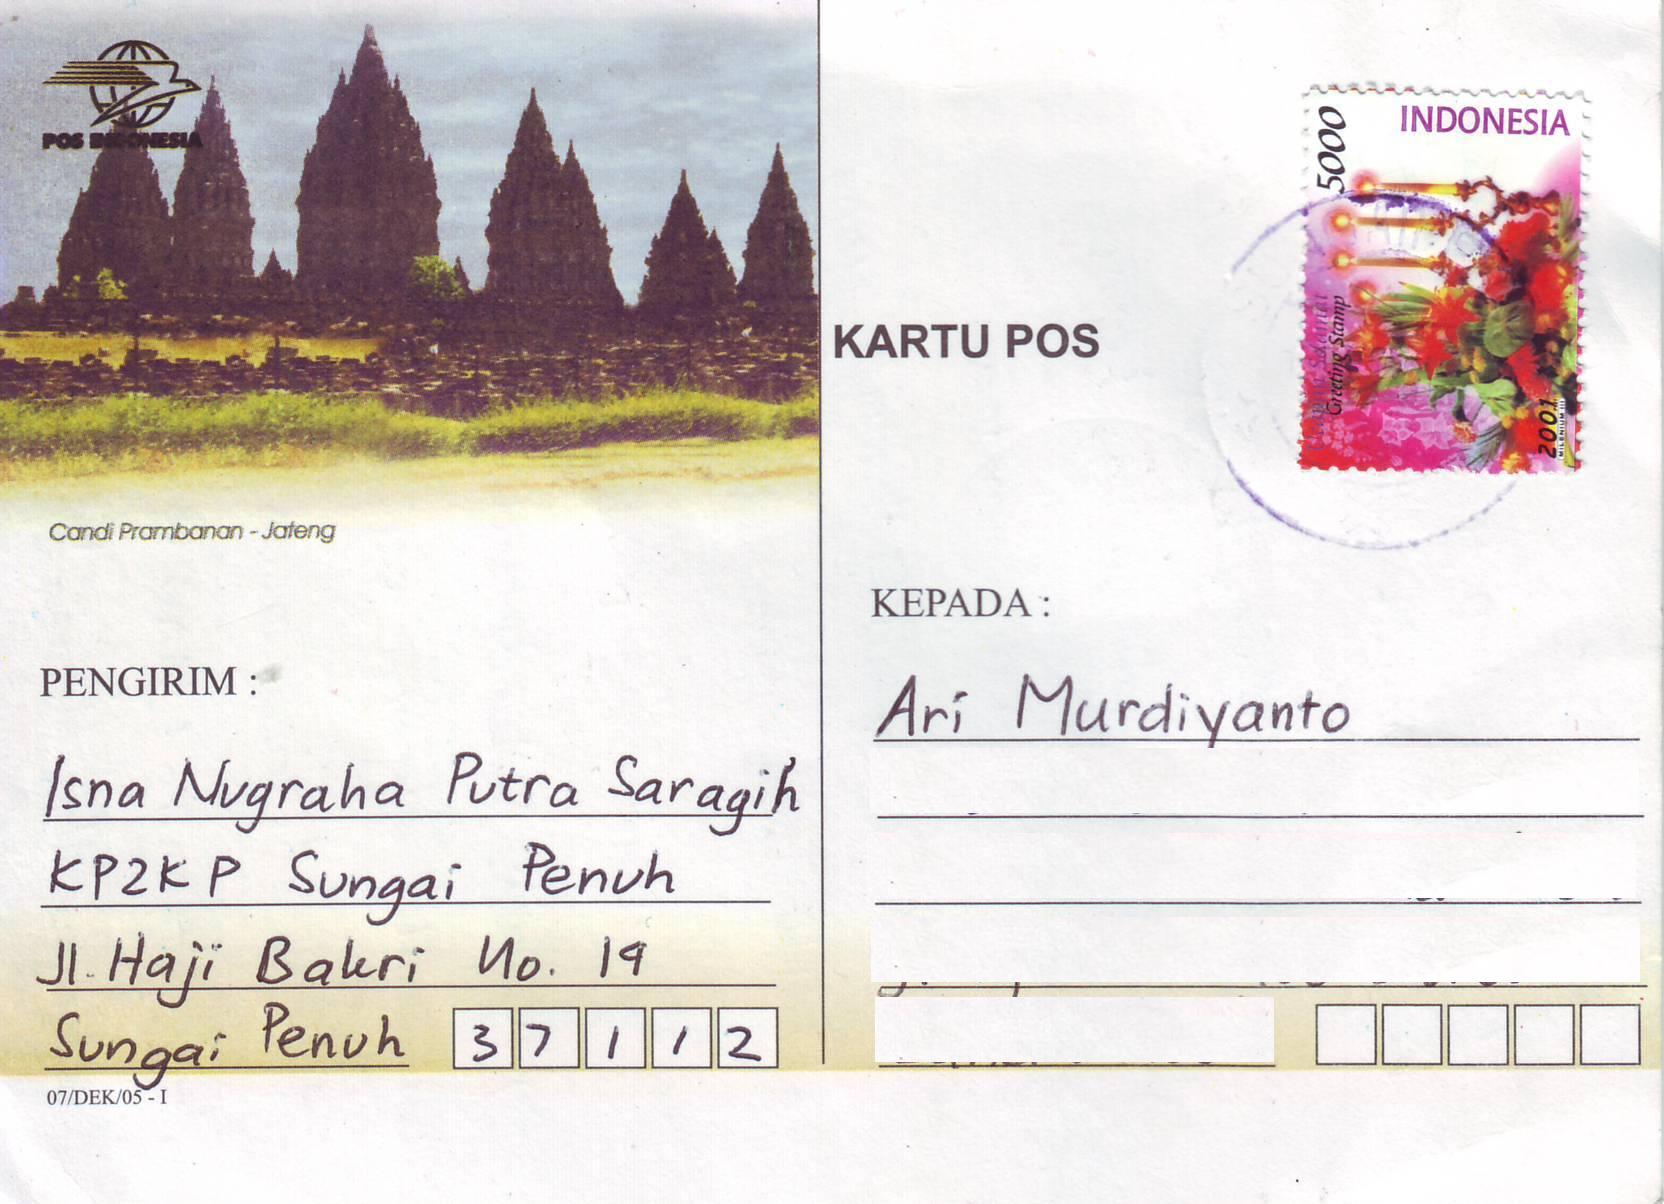 POS INDONESIA
Candi Prambanan - Jateng
PENGIRIM :
Isna Nugraha Putra Saragih
KP2KP Sungai Penuh
Jl. Haji Bakri No. 19
Sungai Penuh 37112
07/DEK/05 - I
KARTU POS
INDONESIA
5000
Greeting Stamp
2001
MILENIUM III
KEPADA :
Ari Murdiyanto